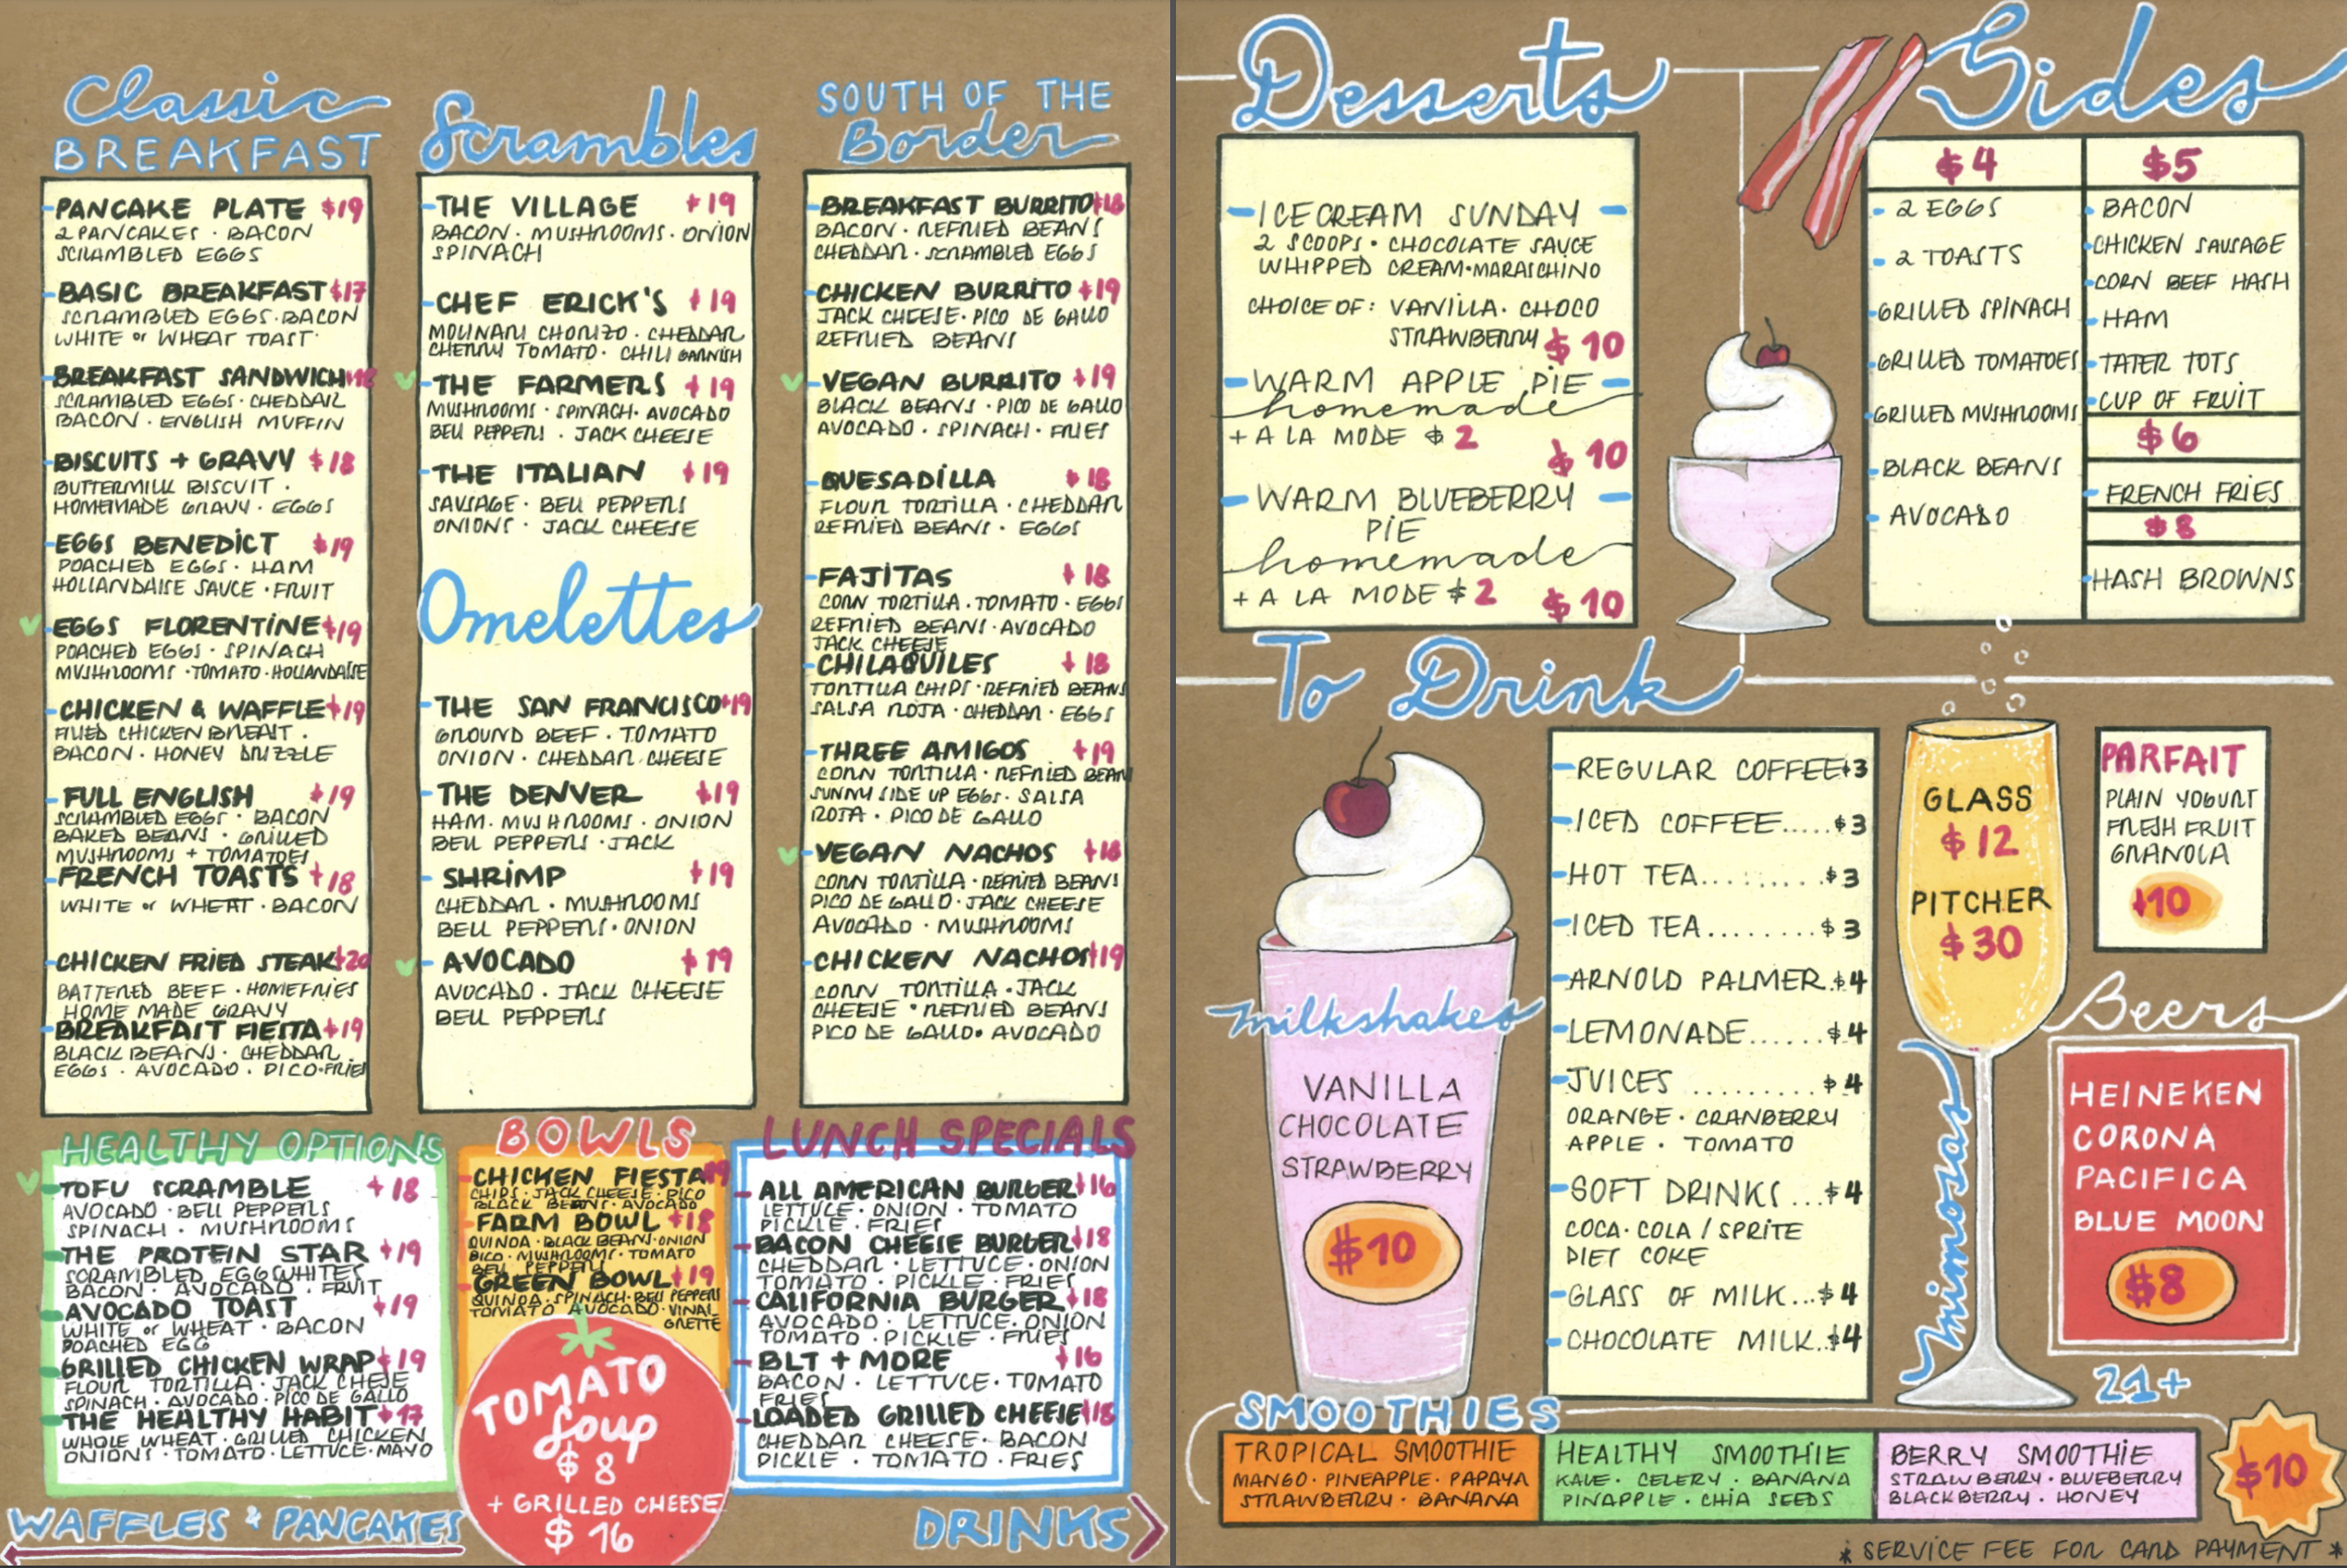 Classic
BREAKFAST
PANCAKE PLATE $19
2 PANCAKES · BACON
SCRAMBLED EGGS
BASIC BREAKFAST $17
SCRAMBLED EGGS · BACON
WHITE or WHEAT TOAST
BREAKFAST SANDWICH
SCRAMBLED EGGS · CHEDDAR
BACON · ENGLISH MUFFIN
BISCUITS + GRAVY $18
BUTTERMILK BISCUIT ·
HOMEMADE GRAVY · EGGS
EGGS BENEDICT $19
POACHED EGGS · HAM
HOLLANDAISE SAUCE · FRUIT
EGGS FLORENTINE $19
POACHED EGGS · SPINACH
MUSHROOMS · TOMATO · HOLLANDAISE
CHICKEN & WAFFLE $19
FRIED CHICKEN BREAST ·
BACON · HONEY DRIZZLE
FULL ENGLISH $19
SCRAMBLED EGGS · BACON
BAKED BEANS · GRILLED
MUSHROOMS + TOMATOES
FRENCH TOASTS $18
WHITE or WHEAT · BACON
CHICKEN FRIED STEAK $20
BATTERED BEEF · HOMEFRIES
HOME MADE GRAVY
BREAKFAST FIESTA $19
BLACK BEANS · CHEDDAR
EGGS · AVOCADO · PICO · FRIES
Scrambles
THE VILLAGE $19
BACON · MUSHROOMS · ONION
SPINACH
CHEF ERICK'S $19
MOLINARI CHORIZO · CHEDDAR
CHERRY TOMATO · CHILI GARNISH
THE FARMERS $19
MUSHROOMS · SPINACH · AVOCADO
BELL PEPPERS · JACK CHEESE
THE ITALIAN $19
SAUSAGE · BELL PEPPERS
ONIONS · JACK CHEESE
Omelettes
THE SAN FRANCISCO $19
GROUND BEEF · TOMATO
ONION · CHEDDAR CHEESE
THE DENVER $19
HAM · MUSHROOMS · ONION
BELL PEPPERS · JACK
SHRIMP $19
CHEDDAR · MUSHROOMS
BELL PEPPERS · ONION
AVOCADO $19
AVOCADO · JACK CHEESE
BELL PEPPERS
SOUTH OF THE
Border
BREAKFAST BURRITO $18
BACON · REFRIED BEANS
CHEDDAR · SCRAMBLED EGGS
CHICKEN BURRITO $19
JACK CHEESE · PICO DE GALLO
REFRIED BEANS
VEGAN BURRITO $19
BLACK BEANS · PICO DE GALLO
AVOCADO · SPINACH · FRIES
QUESADILLA $18
FLOUR TORTILLA · CHEDDAR
REFRIED BEANS · EGGS
FAJITAS $18
CORN TORTILLA · TOMATO · EGGS
REFRIED BEANS · AVOCADO
JACK CHEESE
CHILAQUILES $18
TORTILLA CHIPS · REFRIED BEANS
SALSA ROJA · CHEDDAR · EGGS
THREE AMIGOS $19
CORN TORTILLA · REFRIED BEAN
SUNNY SIDE UP EGGS · SALSA
ROJA · PICO DE GALLO
VEGAN NACHOS $18
CORN TORTILLA · REFRIED BEANS
PICO DE GALLO · JACK CHEESE
AVOCADO · MUSHROOMS
CHICKEN NACHOS $19
CORN TORTILLA · JACK
CHEESE · REFRIED BEANS
PICO DE GALLO · AVOCADO
HEALTHY OPTIONS
TOFU SCRAMBLE $18
AVOCADO · BELL PEPPERS
SPINACH · MUSHROOMS
THE PROTEIN STAR $19
SCRAMBLED EGGWHITES
BACON · AVOCADO · FRUIT
AVOCADO TOAST $19
WHITE or WHEAT · BACON
POACHED EGG
GRILLED CHICKEN WRAP $19
FLOUR TORTILLA · JACK CHESE
SPINACH · AVOCADO · PICO DE GALLO
THE HEALTHY HABIT $17
WHOLE WHEAT · GRILLED CHICKEN
ONIONS · TOMATO · LETTUCE · MAYO
WAFFLES & PANCAKES
BOWLS
CHICKEN FIESTA $19
CHIPS · JACK CHEESE · PICO
BLACK BEANS · AVOCADO
FARM BOWL $18
QUINOA · BLACK BEANS · ONION
PICO · MUSHROOMS · TOMATO
BELL PEPPERS
GREEN BOWL $19
QUINOA · SPINACH · BELL PEPPERS
TOMATO AVOCADO · VINAI
GRETTE
TOMATO
Soup
$8
+ GRILLED CHEESE
$16
LUNCH SPECIALS
ALL AMERICAN BURGER $16
LETTUCE · ONION · TOMATO
PICKLE · FRIES
BACON CHEESE BURGER $18
CHEDDAR · LETTUCE · ONION
TOMATO · PICKLE · FRIES
CALIFORNIA BURGER $18
AVOCADO · LETTUCE · ONION
TOMATO · PICKLE · FRIES
BLT + MORE $16
BACON · LETTUCE · TOMATO
FRIES
LOADED GRILLED CHEESE $18
CHEDDAR CHEESE · BACON
PICKLE · TOMATO · FRIES
DRINKS
Desserts
ICECREAM SUNDAY
2 SCOOPS · CHOCOLATE SAUCE
WHIPPED CREAM · MARASCHINO
CHOICE OF: VANILLA · CHOCO
STRAWBERRY $10
WARM APPLE PIE
homemade
+ A LA MODE $2
$10
WARM BLUEBERRY
PIE
homemade
+ A LA MODE $2 $10
Sides
$4
2 EGGS
2 TOASTS
GRILLED SPINACH
GRILLED TOMATOES
GRILLED MUSHROOMS
BLACK BEANS
AVOCADO
$5
BACON
CHICKEN SAUSAGE
CORN BEEF HASH
HAM
TATER TOTS
CUP OF FRUIT
$6
FRENCH FRIES
$8
HASH BROWNS
To Drink
milkshakes
VANILLA
CHOCOLATE
STRAWBERRY
$10
REGULAR COFFEE $3
ICED COFFEE.....$3
HOT TEA.........$3
ICED TEA........$3
ARNOLD PALMER.$4
LEMONADE......$4
JUICES .........$4
ORANGE · CRANBERRY
APPLE · TOMATO
SOFT DRINKS...$4
COCA·COLA / SPRITE
DIET COKE
GLASS OF MILK...$4
CHOCOLATE MILK..$4
GLASS
$12
PITCHER
$30
mimosas
PARFAIT
PLAIN YOGURT
FRESH FRUIT
GRANOLA
$10
Beers
HEINEKEN
CORONA
PACIFICA
BLUE MOON
$8
21+
SMOOTHIES
TROPICAL SMOOTHIE
MANGO · PINEAPPLE · PAPAYA
STRAWBERRY · BANANA
HEALTHY SMOOTHIE
KALE · CELERY · BANANA
PINAPPLE · CHIA SEEDS
BERRY SMOOTHIE
STRAWBERRY · BLUEBERRY
BLACKBERRY · HONEY
$10
* SERVICE FEE FOR CARD PAYMENT *